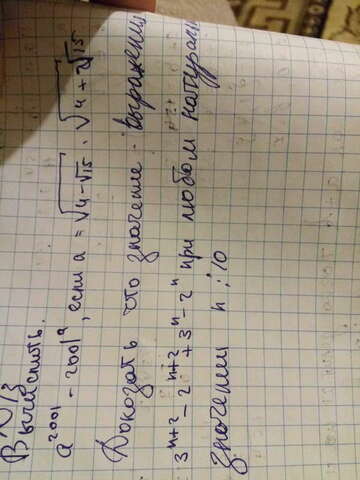 №3
Вычислить.
a²⁰⁰¹ - 2001ᵃ, если a = √(4-√15) · √(4+√15)
Доказать что значение выражения
3ⁿ⁺² - 2ⁿ⁺² + 3ⁿ - 2ⁿ при любом натурал
значении n ⋮ 10